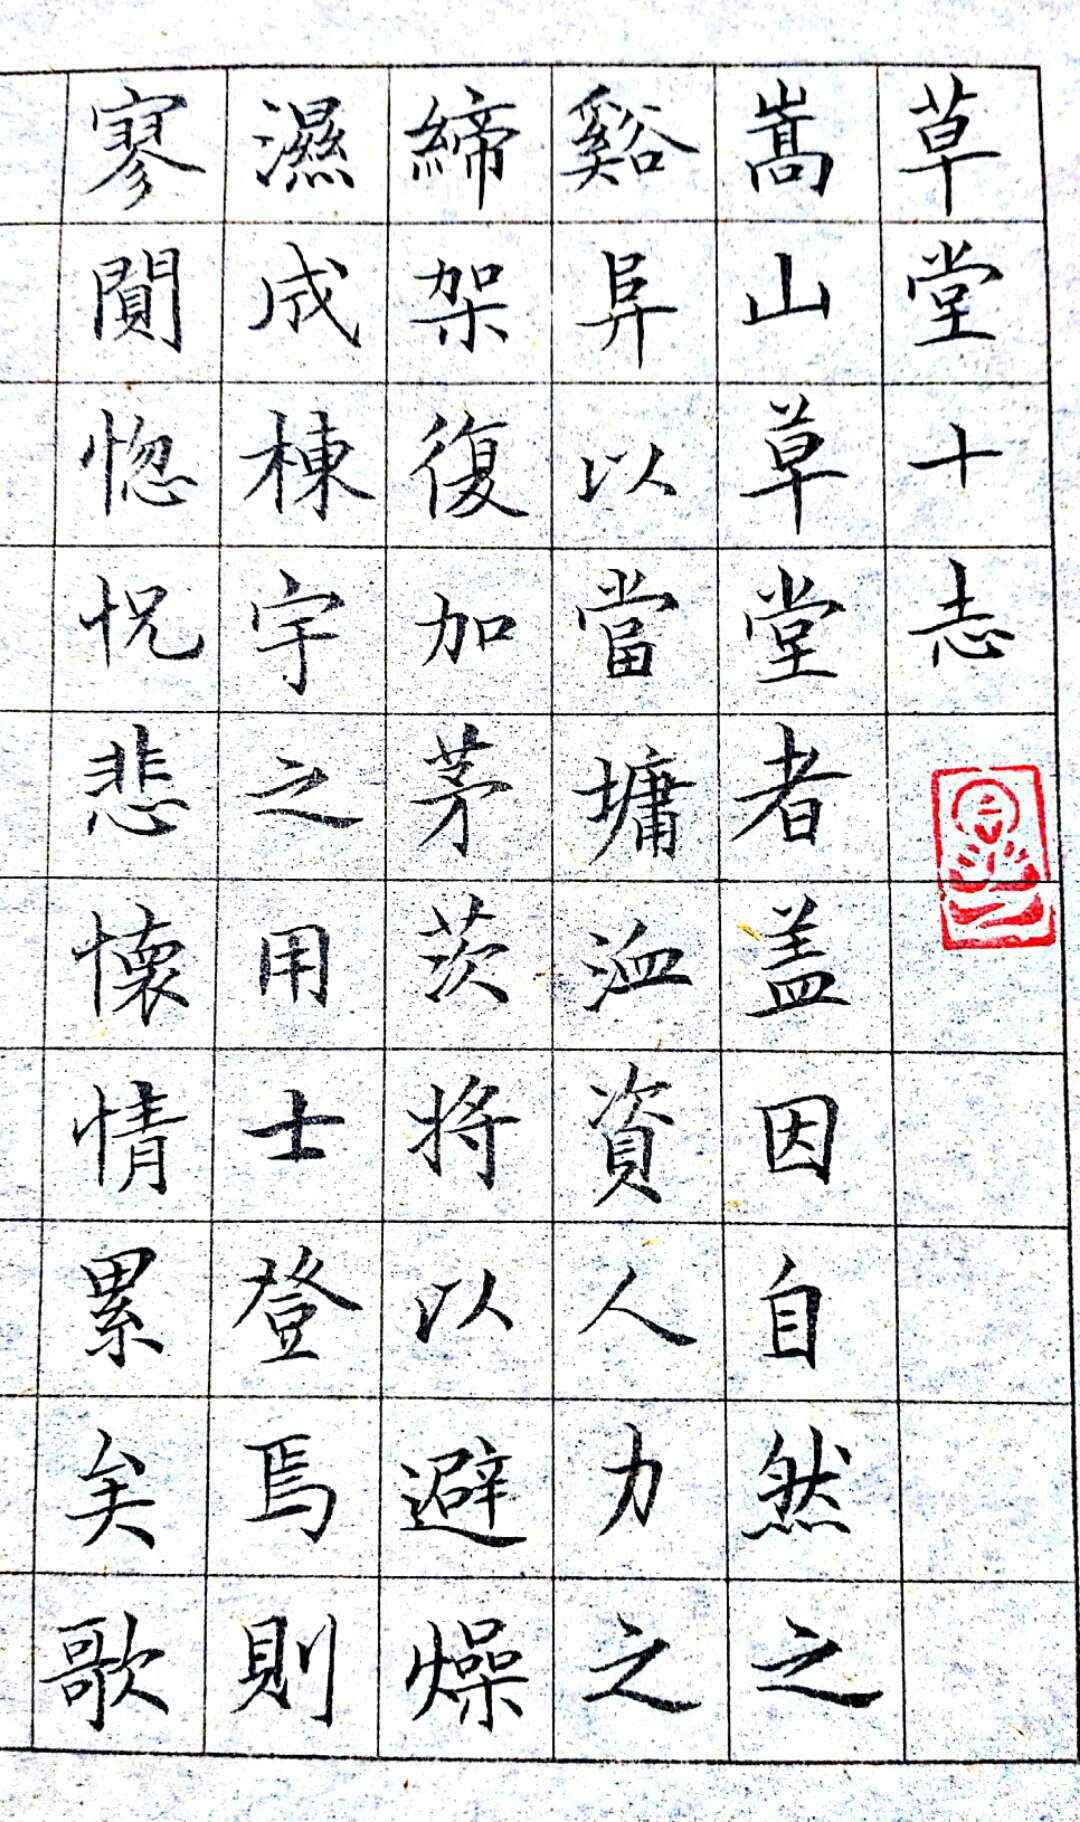 草堂十志
嵩山草堂者盖因自然之
谿阜以當墉洫資人力之
締架復加茅茨将以避燥
濕成棟宇之用士登焉則
寥閴惚怳悲懷情累矣歌